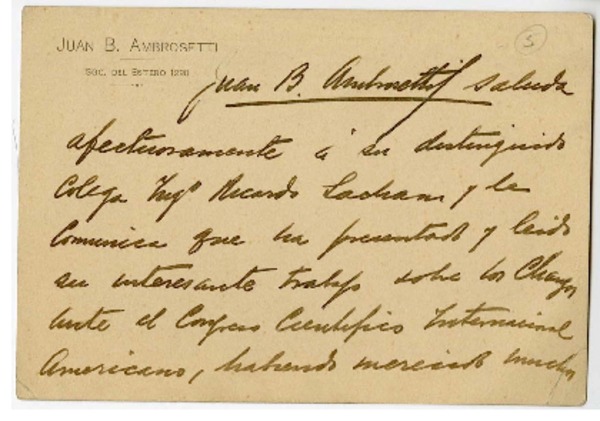 JUAN B. AMBROSETTI
SGO. DEL ESTERO 1298
5
Juan B. Ambrosetti saluda
afectuosamente á su distinguido
Colega Ingº Ricardo Latcham y le
Comunica que ha presentado y leido
su interesante trabajo sobre los Changos
ante el Congreso Cientifico Internacional
Americano, habiendo merecido muchos